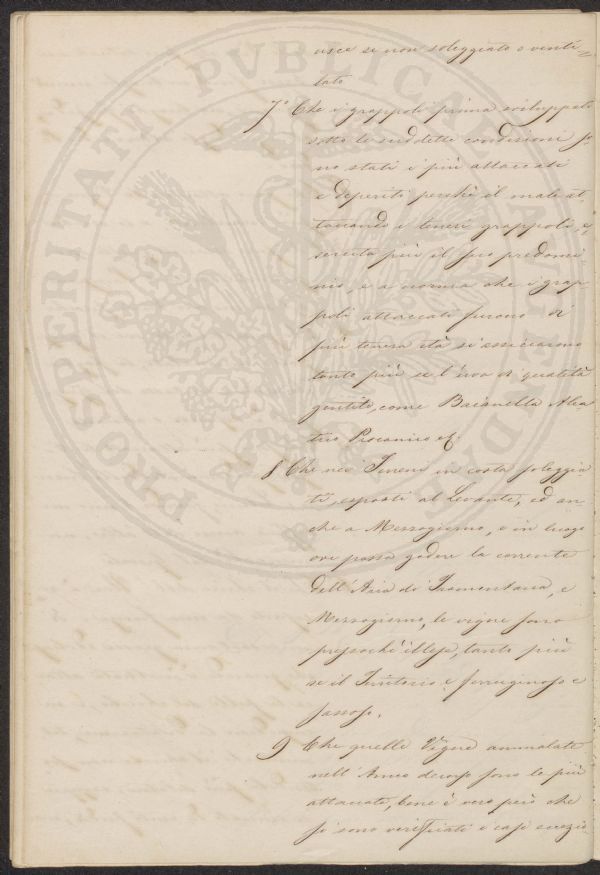 usce se non soleggiato o venti=
lato
7° Che i grappoli prima sviluppati
sotto le suddette condizioni so=
no stati i più attaccati
e deperiti perchè il male at=
taccando i teneri grappoli, e=
sercita più il suo predomi
nio, e a norma che i grap
poli attaccati furono di
più tenera età si essiccarono
tanto più se l'uva di qualità
gentile, come Bacianella Alea=
tico Procanico e
8 Che nei Terreni in costa soleggia
ti, esposti al Levante, ed an=
che a Mezzogiorno, o in luogo
ove possa godere la corrente
dell'Aria di Tramontana, e
Mezzogiorno, le vigne sono
pressochè illese, tanto più
se il Territorio è ferruginoso e
sassoso.
9 Che quelle Vigne ammalate
nell'Anno decorso sono le più
attaccate, bene è vero però che
si sono verificati i casi eccezio
PROSPERITATI PVBLICAE AVGENDAE